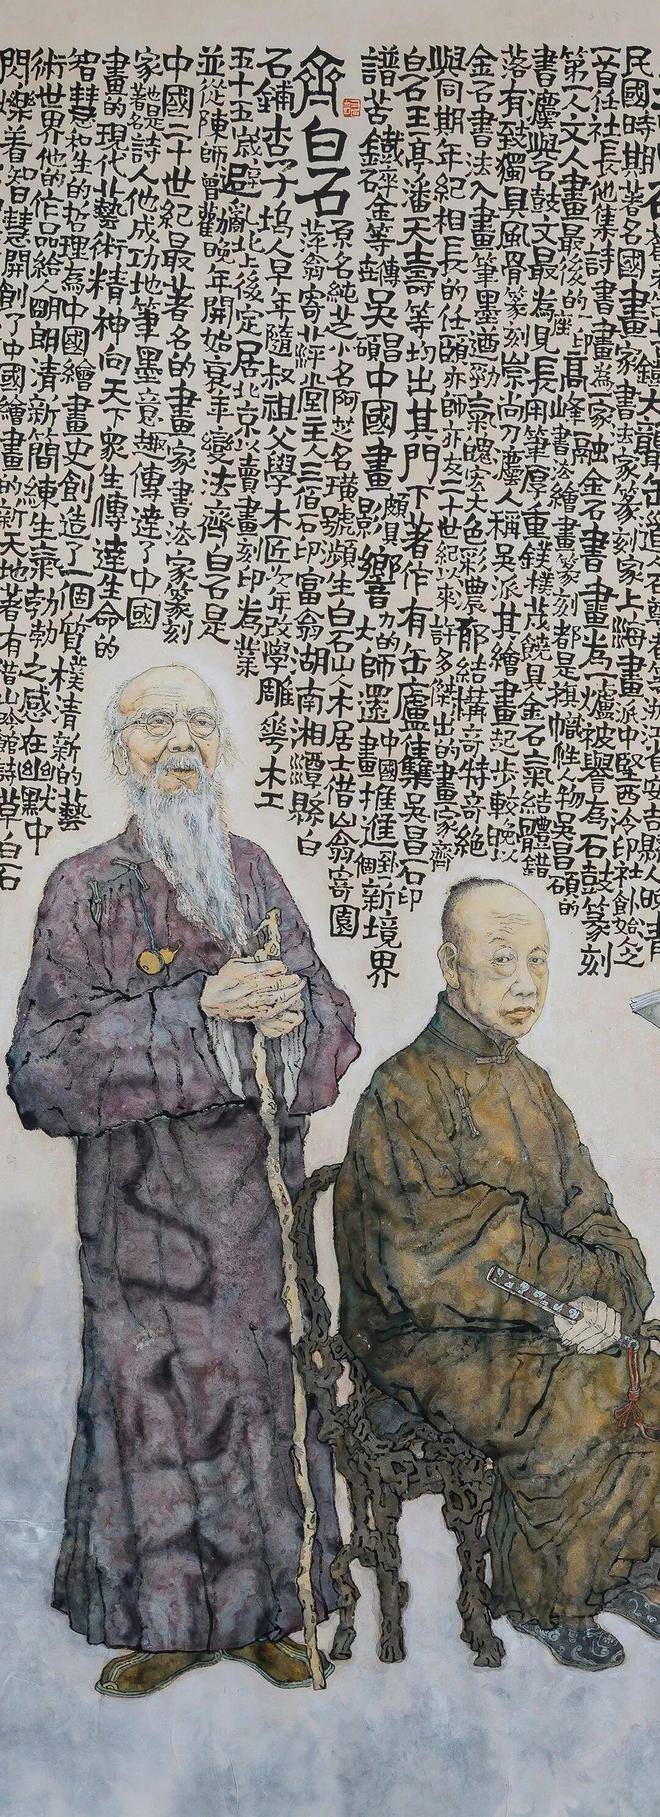 民國時期著名國畫家書法家篆刻家上海畫派中堅西泠印社創始人之
一首任社長他集詩書畫為一家融金石書畫為一爐被譽為石鼓篆刻
第一人文人畫最後的一座高峰書法繪畫篆刻都是旗幟性人物吳昌碩的
書與石鼓文最為見長用筆厚重樸茂饒具金石氣結體錯
落有致獨具風骨篆刻崇尚刀人稱吳派其繪畫起步較晚以
金石書法入畫筆墨遒勁氣魄宏大色彩濃郁結構奇特奇絕
與同期年紀相長的任頤亦師亦友二十世紀以來許多傑出的畫家齊
白石王亭潘天壽等均出其門下著作有缶廬吳昌石印
譜苦鐵碎金等傳吳昌碩中國畫頗具影響力的大師還中國畫推進到個新境界
齊白石
原名純芝小名阿芝名璜號瀕生白石山人木居士借山翁寄園
萍翁寄萍堂主人三佰石印富翁湖南湘潭縣白
石鋪杏子塢人早年隨叔祖父學木匠次年改學雕花木工
五十五歲避亂北上後定居北京以賣畫刻印為業
並從陳師曾勸晚年開始衰年變法齊白石是
中國二十世紀最著名的畫家書法家篆刻
家他是著名詩人他成功地筆墨意趣傳達了中國
畫的現代北藝術精神向天下眾生傳達生命的
智慧和生的哲理為中國繪畫史創造了一個質樸清新的藝
術世界他的作品給人明朗清新簡練生氣勃勃之感在幽默中
閃爍着智慧開創了中國繪畫的新天地著有借山吟館詩草白石